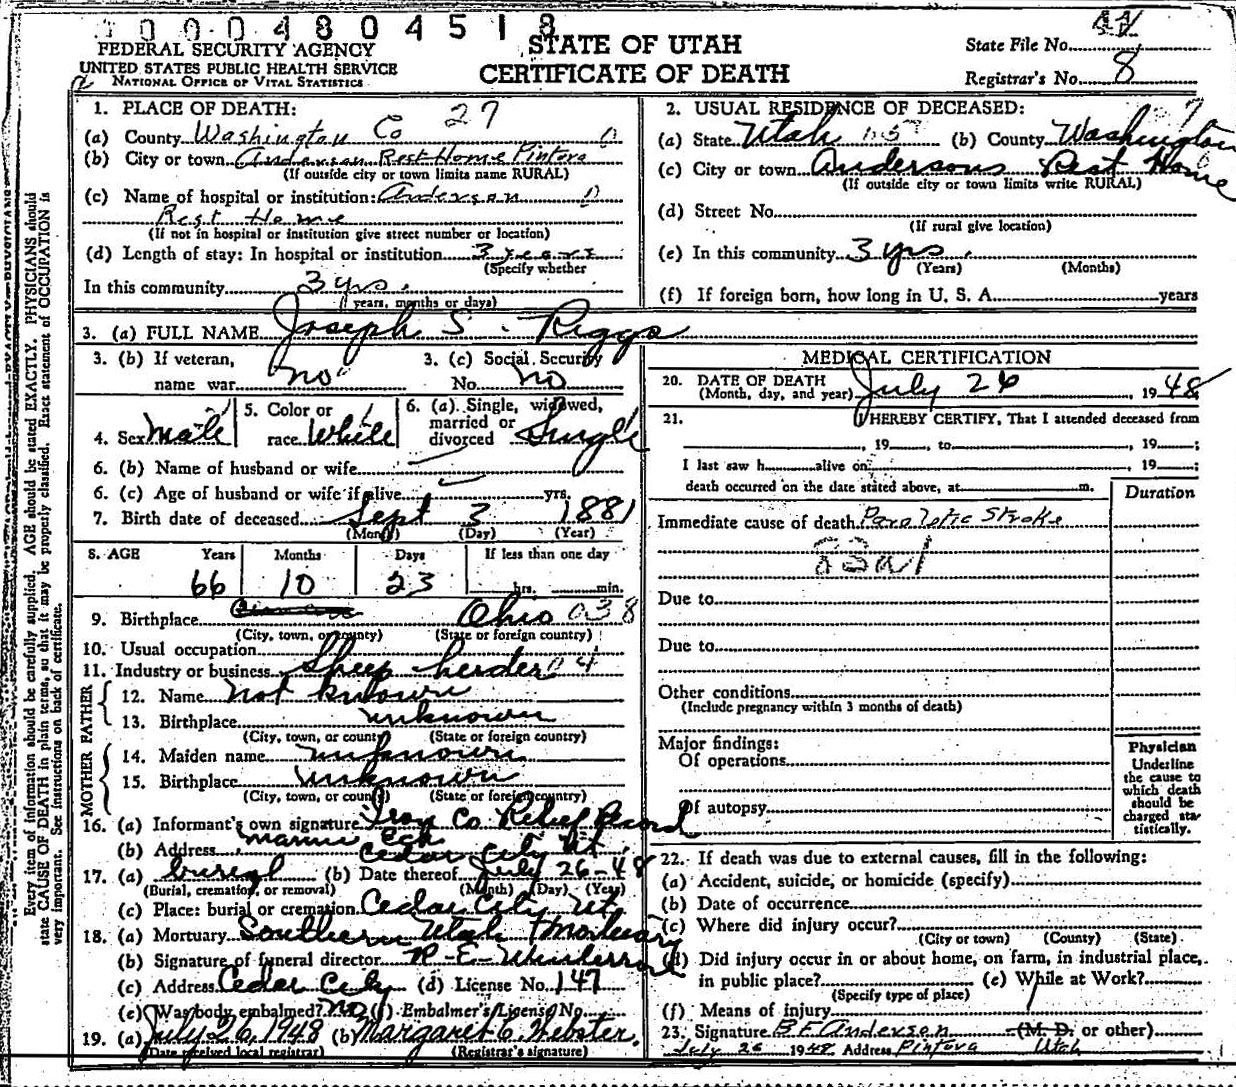 0 0 0 4 8 0 4 5 1 8
FEDERAL SECURITY AGENCY
UNITED STATES PUBLIC HEALTH SERVICE
NATIONAL OFFICE OF VITAL STATISTICS
STATE OF UTAH
CERTIFICATE OF DEATH
State File No.
Registrar's No. 8
1. PLACE OF DEATH: 27
(a) County Washington Co 0
(b) City or town Anderson Rest Home Pintura
(If outside city or town limits name RURAL)
(c) Name of hospital or institution: Anderson 0
Rest Home
(If not in hospital or institution give street number or location)
(d) Length of stay: In hospital or institution 3 years
(Specify whether
In this community 3 yrs.
years, months or days)
2. USUAL RESIDENCE OF DECEASED:
(a) State Utah (b) County Washington
(c) City or town Andersons Rest Home
(If outside city or town limits write RURAL)
(d) Street No.
(If rural give location)
(e) In this community 3 yrs.
(Years) (Months)
(f) If foreign born, how long in U. S. A. years
3. (a) FULL NAME Joseph S. Riggs
3. (b) If veteran,
name war no
3. (c) Social Security
No. no
4. Sex Male
5. Color or
race White
6. (a) Single, widowed,
married or
divorced Single
6. (b) Name of husband or wife
6. (c) Age of husband or wife if alive yrs.
7. Birth date of deceased Sept 3 1881
(Month) (Day) (Year)
8. AGE Years Months Days If less than one day
66 10 23 hrs. min.
9. Birthplace Ohio 038
(City, town, or county) (State or foreign country)
10. Usual occupation
11. Industry or business Sheep herder 04
FATHER
12. Name not known
13. Birthplace unknown
(City, town, or county) (State or foreign country)
MOTHER
14. Maiden name unknown
15. Birthplace unknown
(City, town, or county) (State or foreign country)
16. (a) Informant's own signature Iron Co Relief Record
(b) Address Cedar City Ut.
17. (a) bureal (b) Date thereof July 26-48
(Burial, cremation, or removal) (Month) (Day) (Year)
(c) Place: burial or cremation Cedar City Ut
18. (a) Mortuary Southern Utah Mortuary
(b) Signature of funeral director
(c) Address Cedar City (d) License No. 147
(e) Was body embalmed? no (f) Embalmer's License No.
19. (a) July 26, 1948 (b) Margaret C. Webster.
(Date received local registrar) (Registrar's signature)
MEDICAL CERTIFICATION
20. DATE OF DEATH
(Month, day, and year) July 26, 1948
21. I HEREBY CERTIFY, That I attended deceased from
, 19 , to , 19 ;
I last saw h alive on , 19 ;
death occurred on the date stated above, at m.
Duration
Immediate cause of death Paraletic Stroke
83a1
Due to
Due to
Other conditions
(Include pregnancy within 3 months of death)
Major findings:
Of operations
Of autopsy
Physician
Underline
the cause to
which death
should be
charged sta-
tistically.
22. If death was due to external causes, fill in the following:
(a) Accident, suicide, or homicide (specify)
(b) Date of occurrence
(c) Where did injury occur?
(City or town) (County) (State)
(d) Did injury occur in or about home, on farm, in industrial place,
in public place? (e) While at Work?
(Specify type of place)
(f) Means of injury
23. Signature B.F. Anderson (M. D. or other)
July 26 1948 Address Pintura Utah
Every item of information should be carefully supplied. AGE should be stated EXACTLY. PHYSICIANS should
state CAUSE OF DEATH in plain terms, so that it may be properly classified. Exact statement of OCCUPATION is
very important. See instructions on back of certificate.